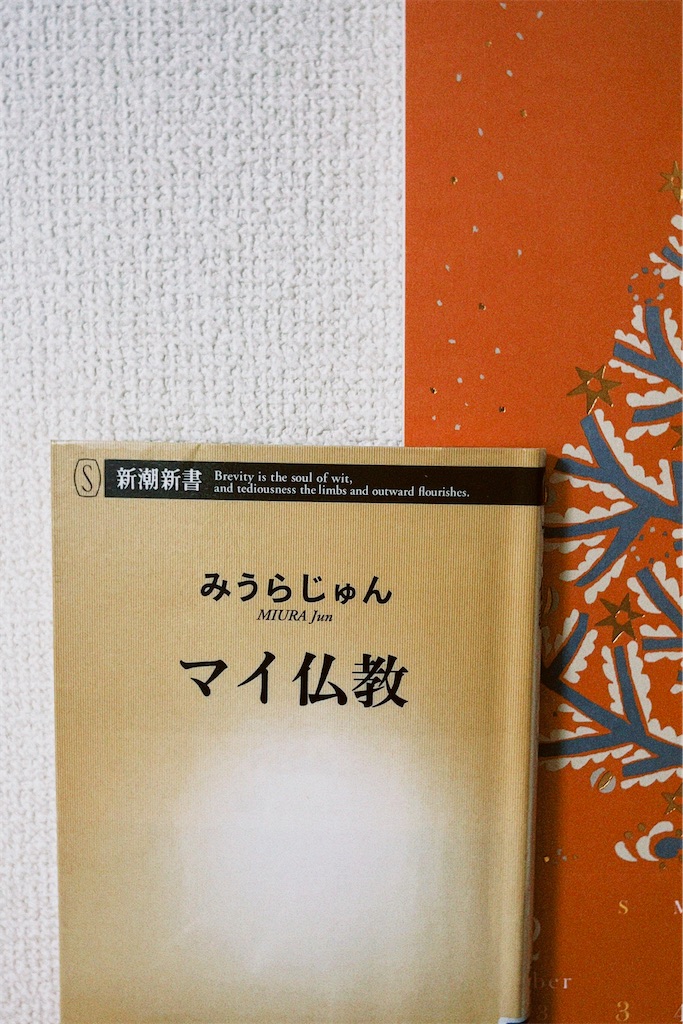 S
新潮新書
Brevity is the soul of wit,
and tediousness the limbs and outward flourishes.
みうらじゅん
MIURA Jun
マイ仏教
S
2
ber
3 3 4